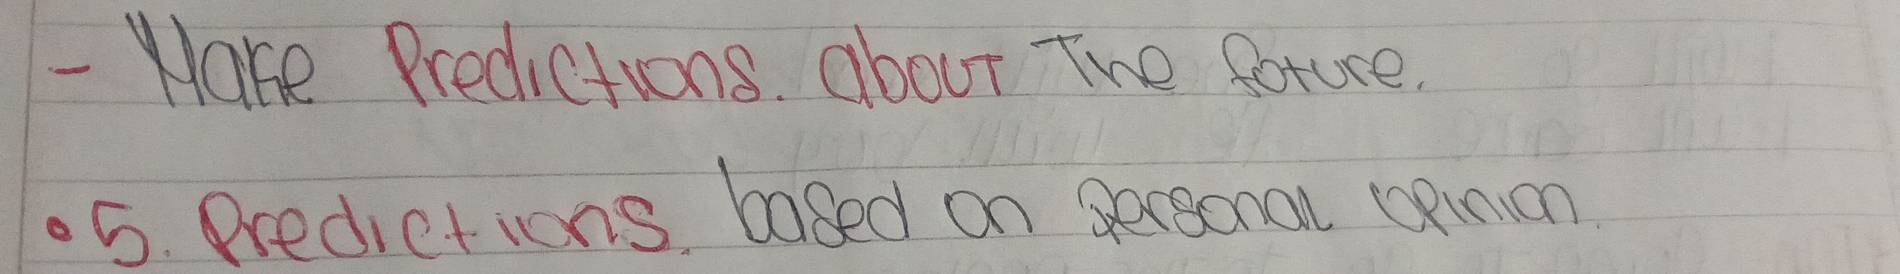 - Make Predictions. about The foture.
• 5. Predictions. based on personal opinion.